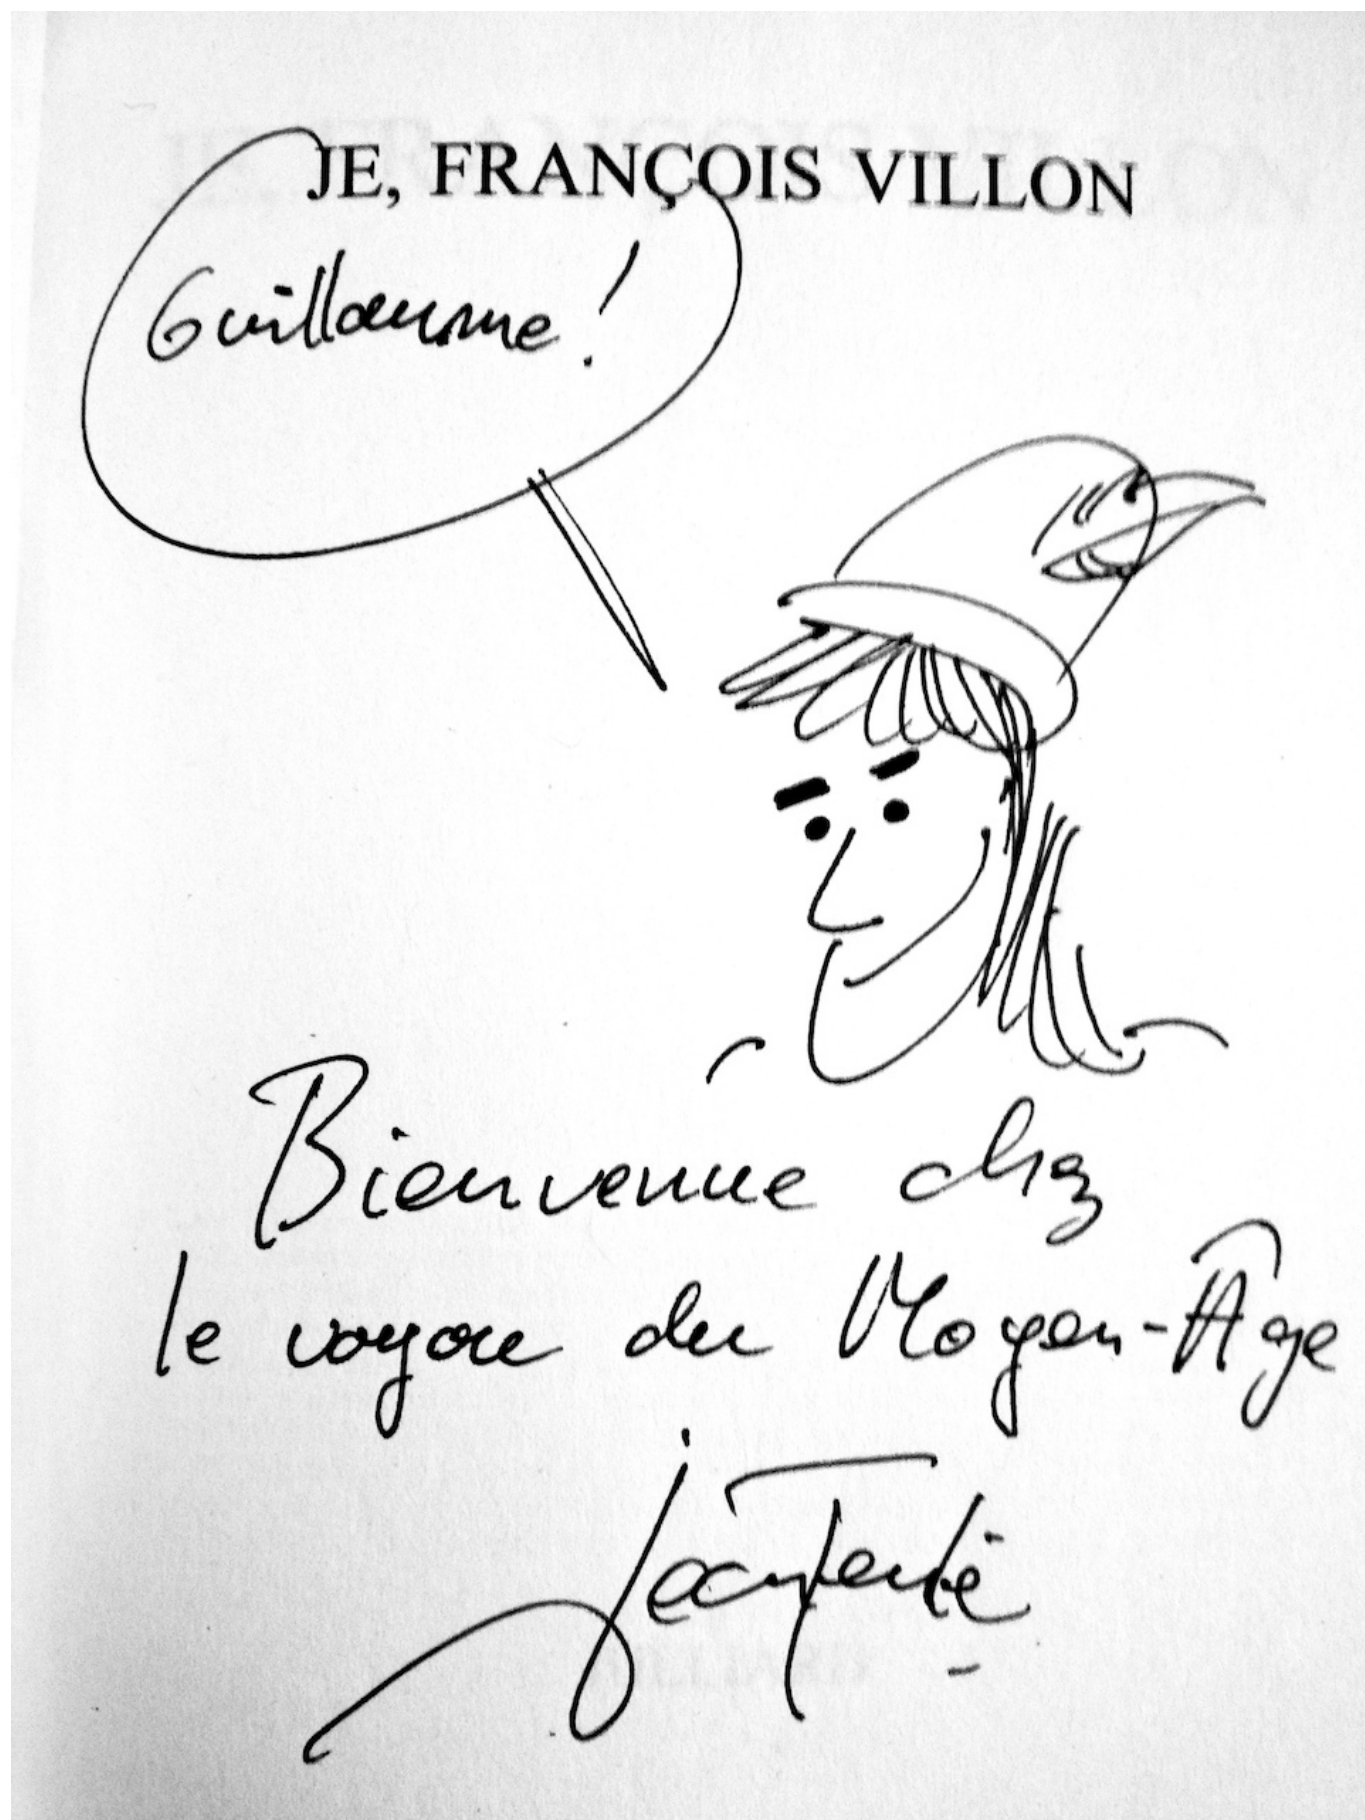 JE, FRANÇOIS VILLON
Guillaume !
Bienvenue chez
le voyou du Moyen-Âge
Jean Teulé